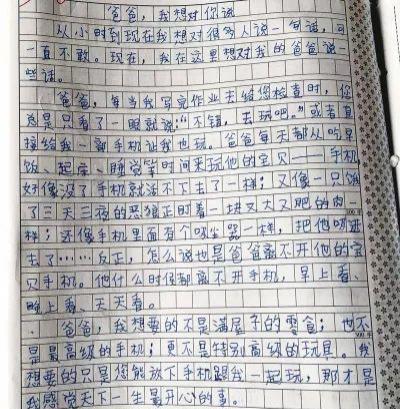 爸爸，我想对你说
从小时到现在我想对很多人说一句话，可
一直不敢。现在，我在这里想对我的爸爸说一
些话。
爸爸，每当我写完作业去给您检查时，你
总是只看了一眼就说：“不错，去玩吧。”或者直
接给我一部手机让我也玩。爸爸每天都从吃早
饭、起床、睡觉等时间来玩他的宝贝——手机
好像没了手机就活不下去了一样；又像一只饿
了三天三夜的恶狼正盯着一块又大又肥的肉一
样；还像手机里面有个吸尘器一样，把他吸进
去了……反正，怎么说也是爸爸离不开他的宝
贝手机。他什么时候都离不开手机，早上看、
晚上看、天天看。
爸爸，我想要的不是满屋子的零食；也不
是最高级的手机；更不是特别高级的玩具。我
想要的只是您能放下手机跟我一起玩，那才是
我感觉天下一生最开心的事。